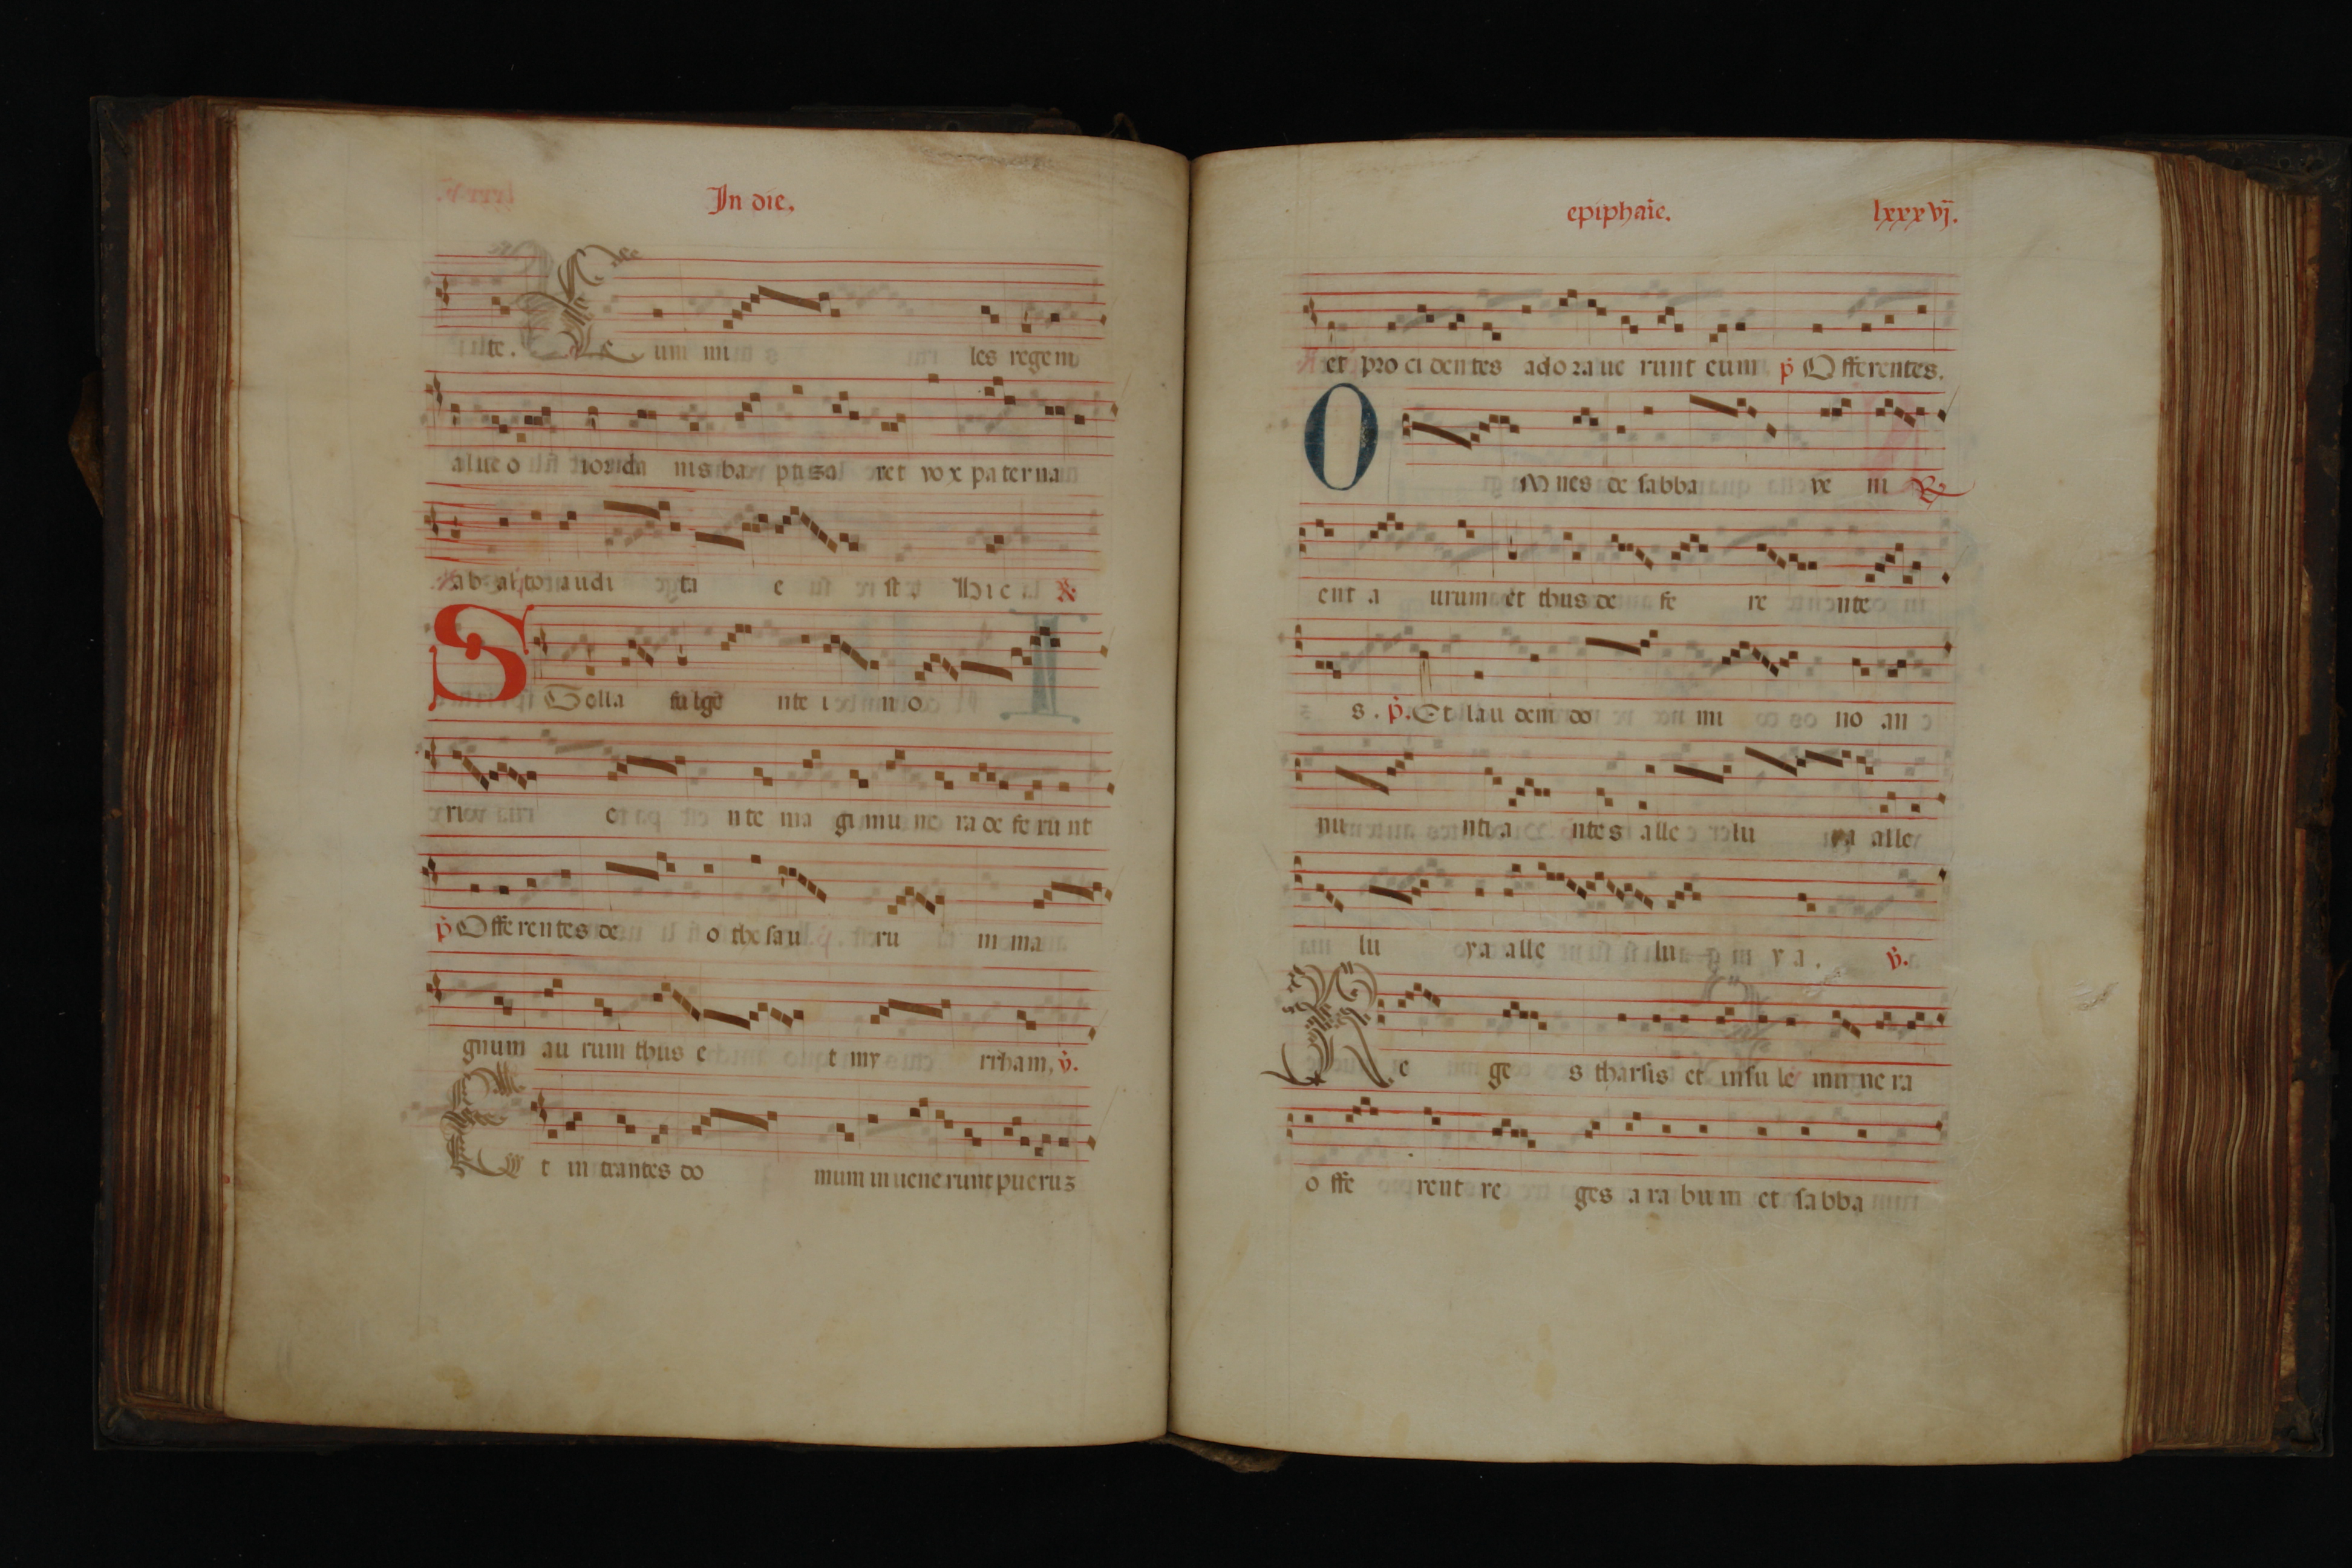 In die.
te. Cum mi les regem
alueo iorda nis ba ptiza ret vox paterna
ab alto audi ta e st. Hic
Stella fulge nte i n o
ri e nte ma gi mu ne ra de fe ru nt
p̄ Offerentes de o thesau ru m ma
gnum au rum thus e t myr rrham, v̄.
Et intrantes do mum inuenerunt pueruz
epiphaīe. lxxxvj.
et procidentes adoraue runt eum p̄ Offerentes.
Omnes de sabba ve ni
ent a urum et thus de fe re nte
s. p̄. Et laudem do mi no an
nu nti a ntes alle lu ya alle
lu ya alle lu ya. v̄.
Re ge s tharsis et insule munera
offe rent re ges arabum et sabba